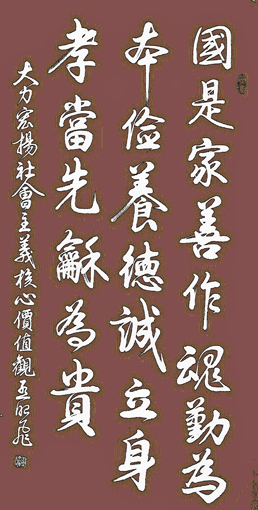 國是家善作魂勤為
本俭養德誠立身
孝當先龢為貴
大力宏揚社會主義核心價值觀